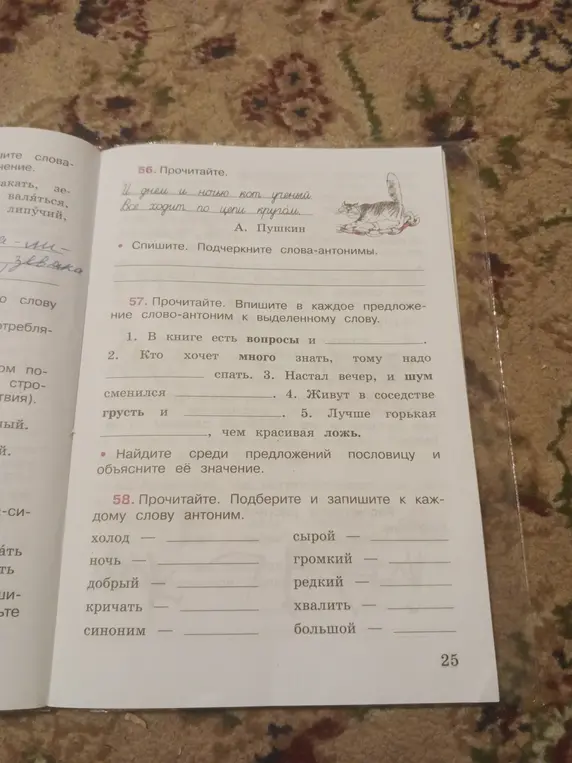 ите слова-
чение.
акать, зе-
валяться,
липу́чий,
зевака
о слову
отребля-
ом по-
стро-
твия).
ный.
й.
-си-
а́ть
ть
ши-
ьте
56. Прочитайте.
И днём и ночью кот учёный
Всё ходит по цепи кругом.
А. Пушкин
• Спишите. Подчеркните слова-антонимы.
57. Прочитайте. Впишите в каждое предложе-
ние слово-антоним к выделенному слову.
1. В книге есть вопросы и ____.
2. Кто хочет много знать, тому надо
____ спать. 3. Настал вечер, и шум
сменился ____. 4. Живут в соседстве
грусть и ____. 5. Лучше горькая
____, чем красивая ложь.
• Найдите среди предложений пословицу и
объясните её значение.
58. Прочитайте. Подберите и запишите к каж-
дому слову антоним.
холод — ____ сырой — ____
ночь — ____ громкий — ____
добрый — ____ редкий — ____
кричать — ____ хвалить — ____
синоним — ____ большой — ____
25